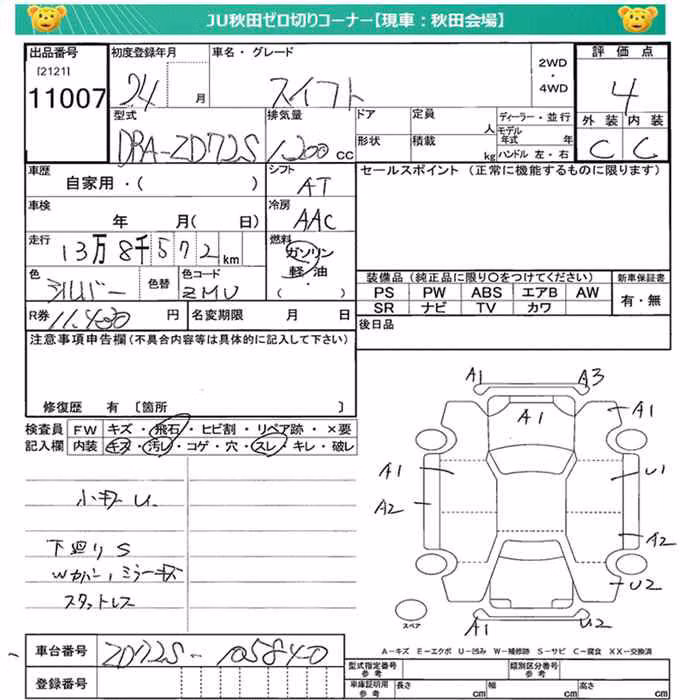 JU秋田ゼロ切りコーナー【現車：秋田会場】
出品番号 初度登録年月 車名・グレード 2WD・4WD 評価点
[2121]
11007 24 月 スイフト 4
型式 排気量 ドア 定員 人 ディーラー・並行 外装 内装
DBA-ZD72S 1200 CC 形状 積載 kg モデル年式 年 C C
ハンドル 左・右
車歴 シフト セールスポイント (正常に機能するものに限ります)
自家用・( ) AT
車検 冷房
年 月( 日) AAC
走行 燃料
13万8千572km ガソリン
軽油
・( )
色 色替 色コード 装備品 (純正品に限り○をつけてください) 新車保証書
シルバー ZMU PS PW ABS エアB AW 有・無
SR ナビ TV カワ
R券 11,430 円 名変期限 月 日 後日品
注意事項申告欄(不具合内容等は具体的に記入して下さい)
修復歴 有 〔箇所 〕
検査員 FW キズ・飛石・ヒビ割・リペア跡・×要
記入欄 内装 キズ・汚レ・コゲ・穴・スレ・キレ・破レ
A1 A3
A1 A1
A1 U1
A2 A2
U2
A1 U2
小キズU
下廻りS
Wカバー、ミラーキズ
スタットレス
スペア
A－キズ E－エクボ U－凹み W－補修跡 S－サビ C－腐食 XX－交換済
車台番号 ZD72S-105840
型式指定番号 参考 類別区分番号 参考
登録番号 車庫証明用 参考 長さ cm 幅 cm 高さ cm